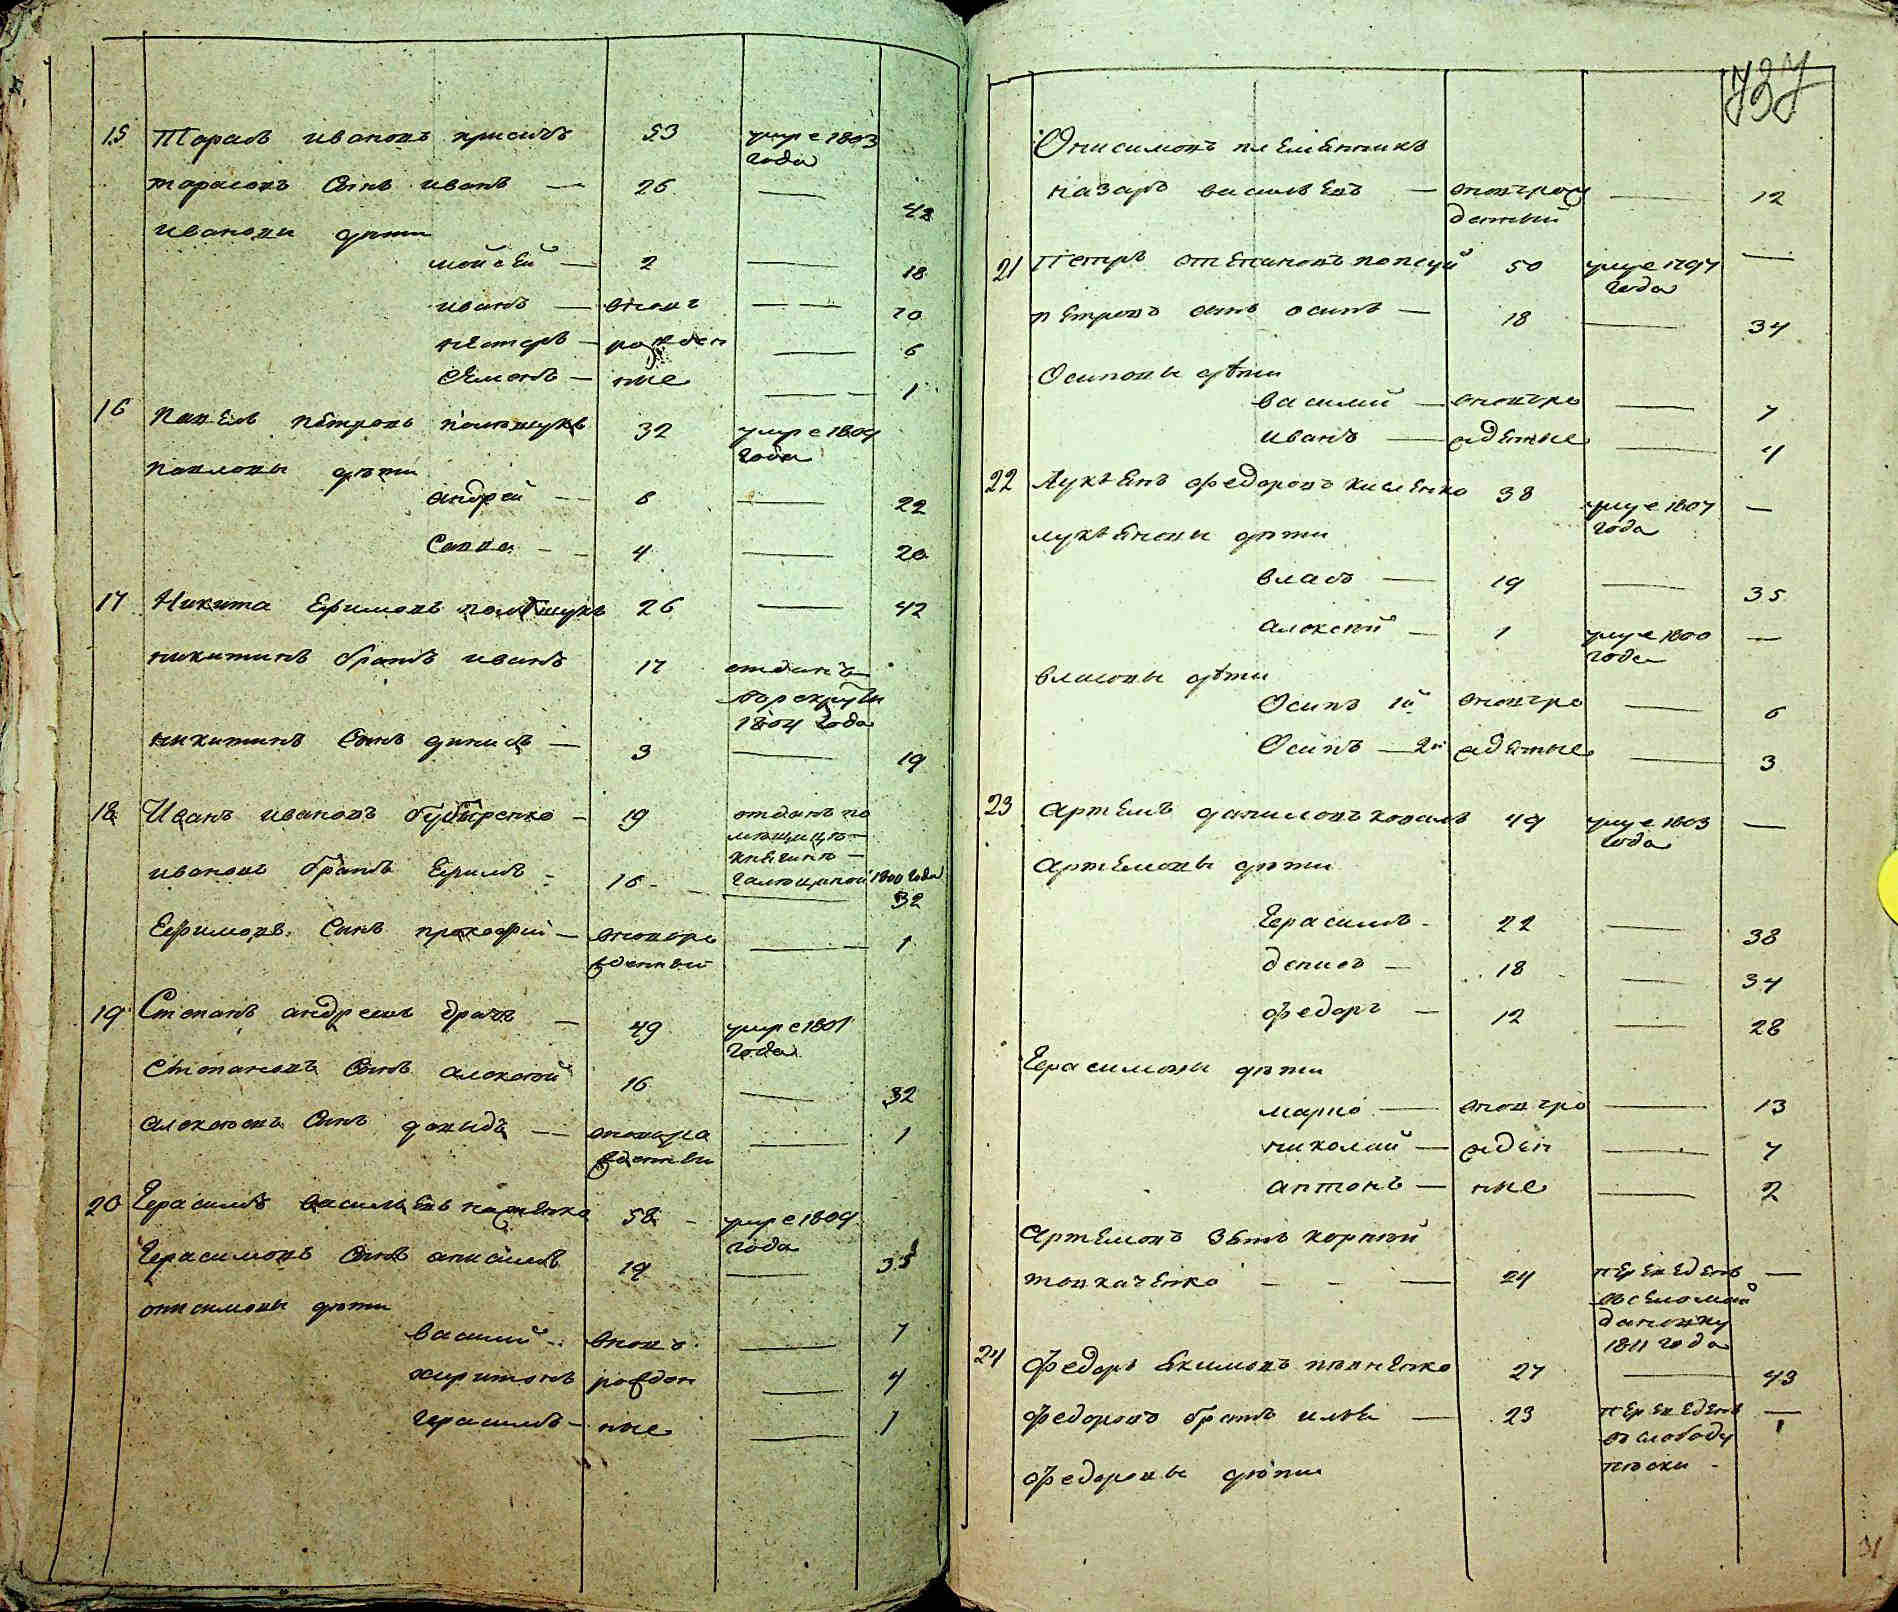 15 Тарасъ ивановъ присичъ 53 умре 1803
года
тарасовъ Сынъ иванъ — 26 — 42
ивановы дѣти
мойсей — 2 — 18
иванъ — вновь — 10
несторъ — рожден — 6
Семенъ — ные — 1
16 Павелъ петровъ полѣщукъ 32 умре 1809
года
павловы дѣти
андрей — 6 — 22
Савва — 4 — 20
17 Никита Ефимовъ полѣщукъ 26 — 42
никитинъ братъ иванъ 17 отданъ
в рекруты
1804 года
никитинъ Сынъ динисъ — 3 — 19
18 Иванъ ивановъ — 19 отданъ по
мѣщицѣ
княгинѣ
ивановъ братъ Ефимъ — 16 — 1800 года
32
Ефимовъ Сынъ прокофій — вновь ро — 1
жденный
19 Степанъ андреевъ драчъ — 49 умре 1801
года
Степановъ Сынъ алексѣй 16 — 32
алексѣевъ Сынъ давыдъ — вновь ро — 1
жденны
20 Герасимъ васильевъ 58 умре 1809
года
Герасимовъ Сынъ анисимъ 19 — 35
онисимовы дѣти
василий — вновь — 7
харитонъ рожден — 4
герасимъ — ные — 1
737
Онисимовъ племенникъ
назаръ васильевъ — вновърож — 12
денный
21 Петръ степановъ попсуй 50 умре 1797 —
года
петровъ сынъ осипъ — 18 — 34
Осиповы дѣти
василий — вновъро — 7
иванъ — жденные — 4
22 Лукьянъ федоровъ кисленко 38 умре 1807 —
года
лукьяновы дѣти
власъ — 19 — 35
алексѣй — 1 умре 1800 —
года
власовы дѣти
Осипъ 1й вновъро — 6
Осипъ — 2й жденные — 3
23 Артемъ даниловъ коваль 49 умре 1803 —
года
артемовы дѣти
Герасимъ — 22 — 38
денисъ — 18 — 34
федоръ — 12 — 28
Герасимовы дѣти
марко — вновъро — 13
николай — жден — 7
антонъ — ные — 2
артемовъ зять корнѣй
товкаченко — — — 24 переведенъ —
въ село
1811 года
24 федоръ якимовъ 27 — 43
федоровъ братъ илья — 23 переведенъ —
въ слободу
пѣски
федоровы дѣти